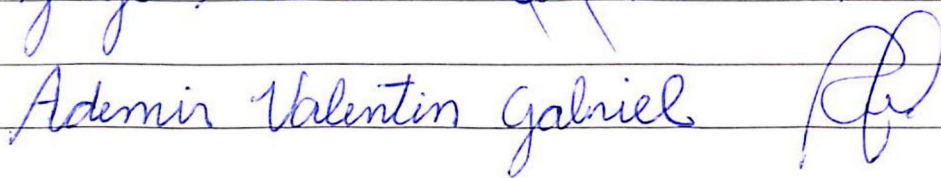 Ademir Valentin Gabriel